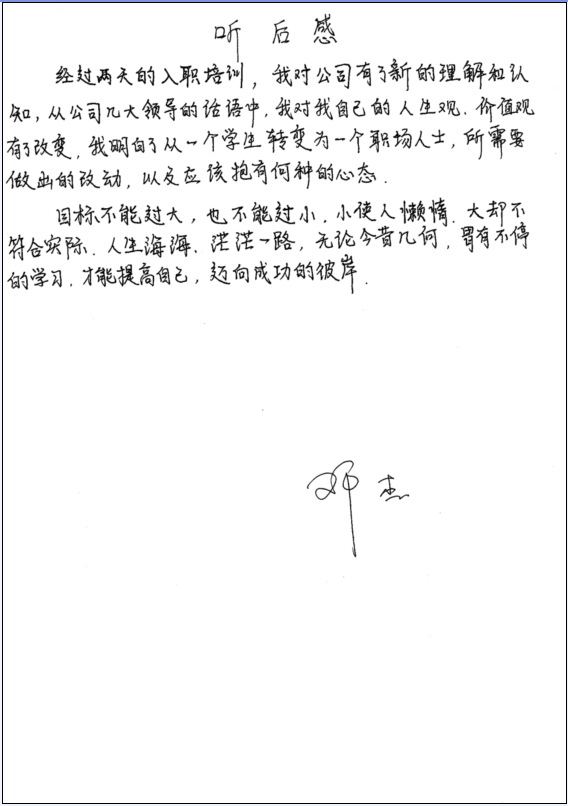 听后感
经过两天的入职培训，我对公司有了新的理解和认
知，从公司几大领导的话语中，我对我自己的人生观、价值观
有了改变，我明白了从一个学生转变为一个职场人士，所需要
做出的改动，以及应该抱有何种的心态.
目标不能过大，也不能过小，小使人懒惰、大却不
符合实际、人生海海、茫茫一路，无论今昔几何，有不停
的学习，才能提高自己，迈向成功的彼岸.
邓杰